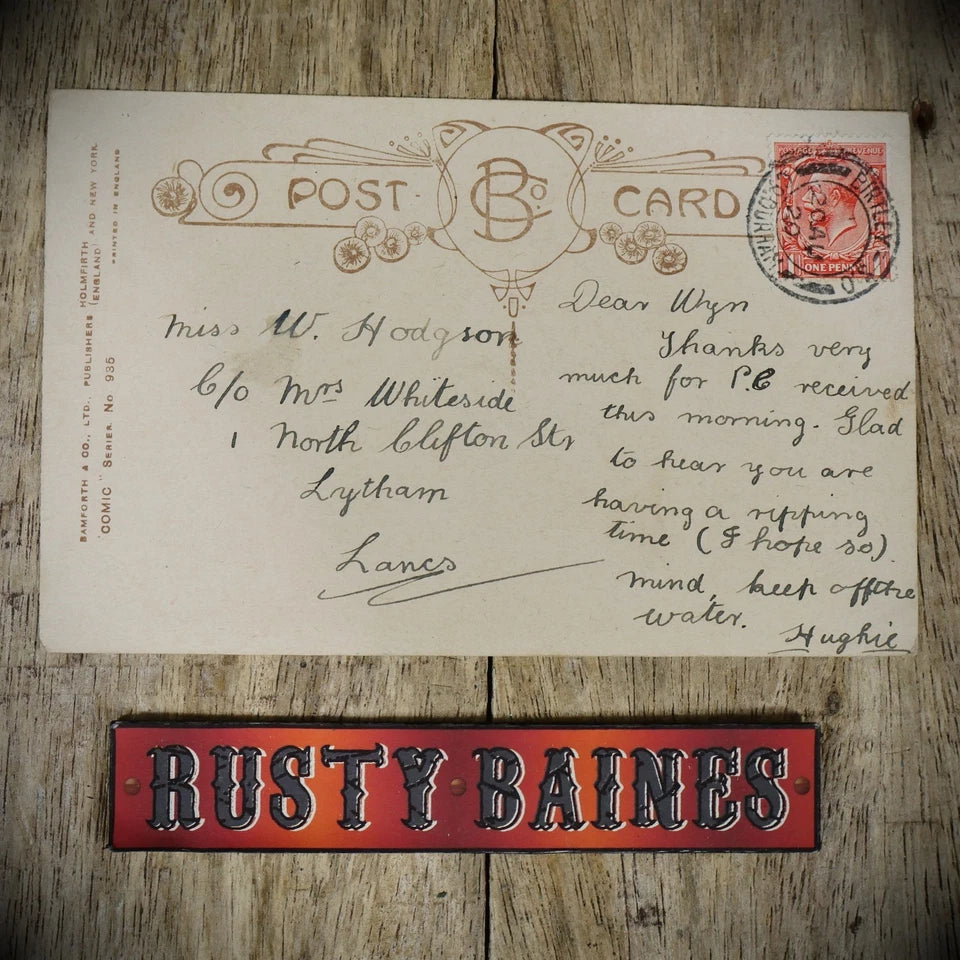 POST CARD
BCo.
BAMFORTH & CO., LTD., PUBLISHERS HOLMFIRTH AND NEW YORK.
(ENGLAND)
PRINTED IN ENGLAND
"COMIC" SERIES. No 935
POSTAGE REVENUE
ONE PENNY
20 AU
20
Miss W. Hodgson
C/o Mrs Whiteside
1 North Clifton Str
Lytham
Lancs
Dear Wyn
Thanks very
much for P.C received
this morning. Glad
to hear you are
having a ripping
time (I hope so)
mind, keep off the
water.
Hughie
RUSTY BAINES